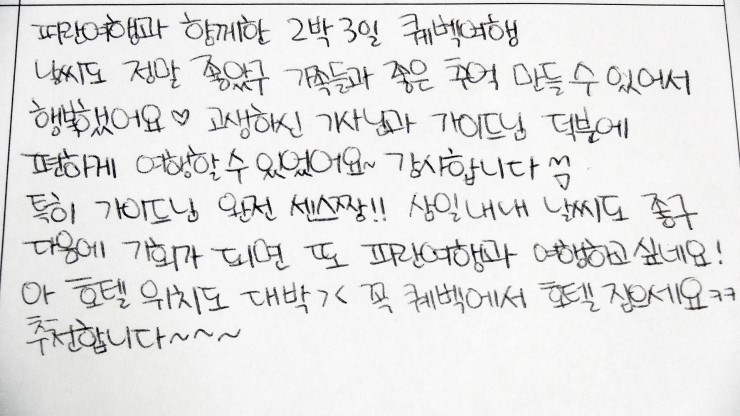 파란여행과 함께한 2박 3일 퀘벡여행
날씨도 정말 좋았구 가족들과 좋은 추억 만들 수 있어서
행복했어요♡ 고생하신 기사님과 가이드님 덕분에
편하게 여행할 수 있었어요~ 감사합니다
특히 가이드님 완전 센스짱!! 삼일내내 날씨도 좋구
다음에 기회가 되면 또 파란여행과 여행하고 싶네요!
아 호텔 위치도 대박 >< 꼭 퀘벡에서 호텔 잡으세요ㅋㅋ
추천합니다~~~